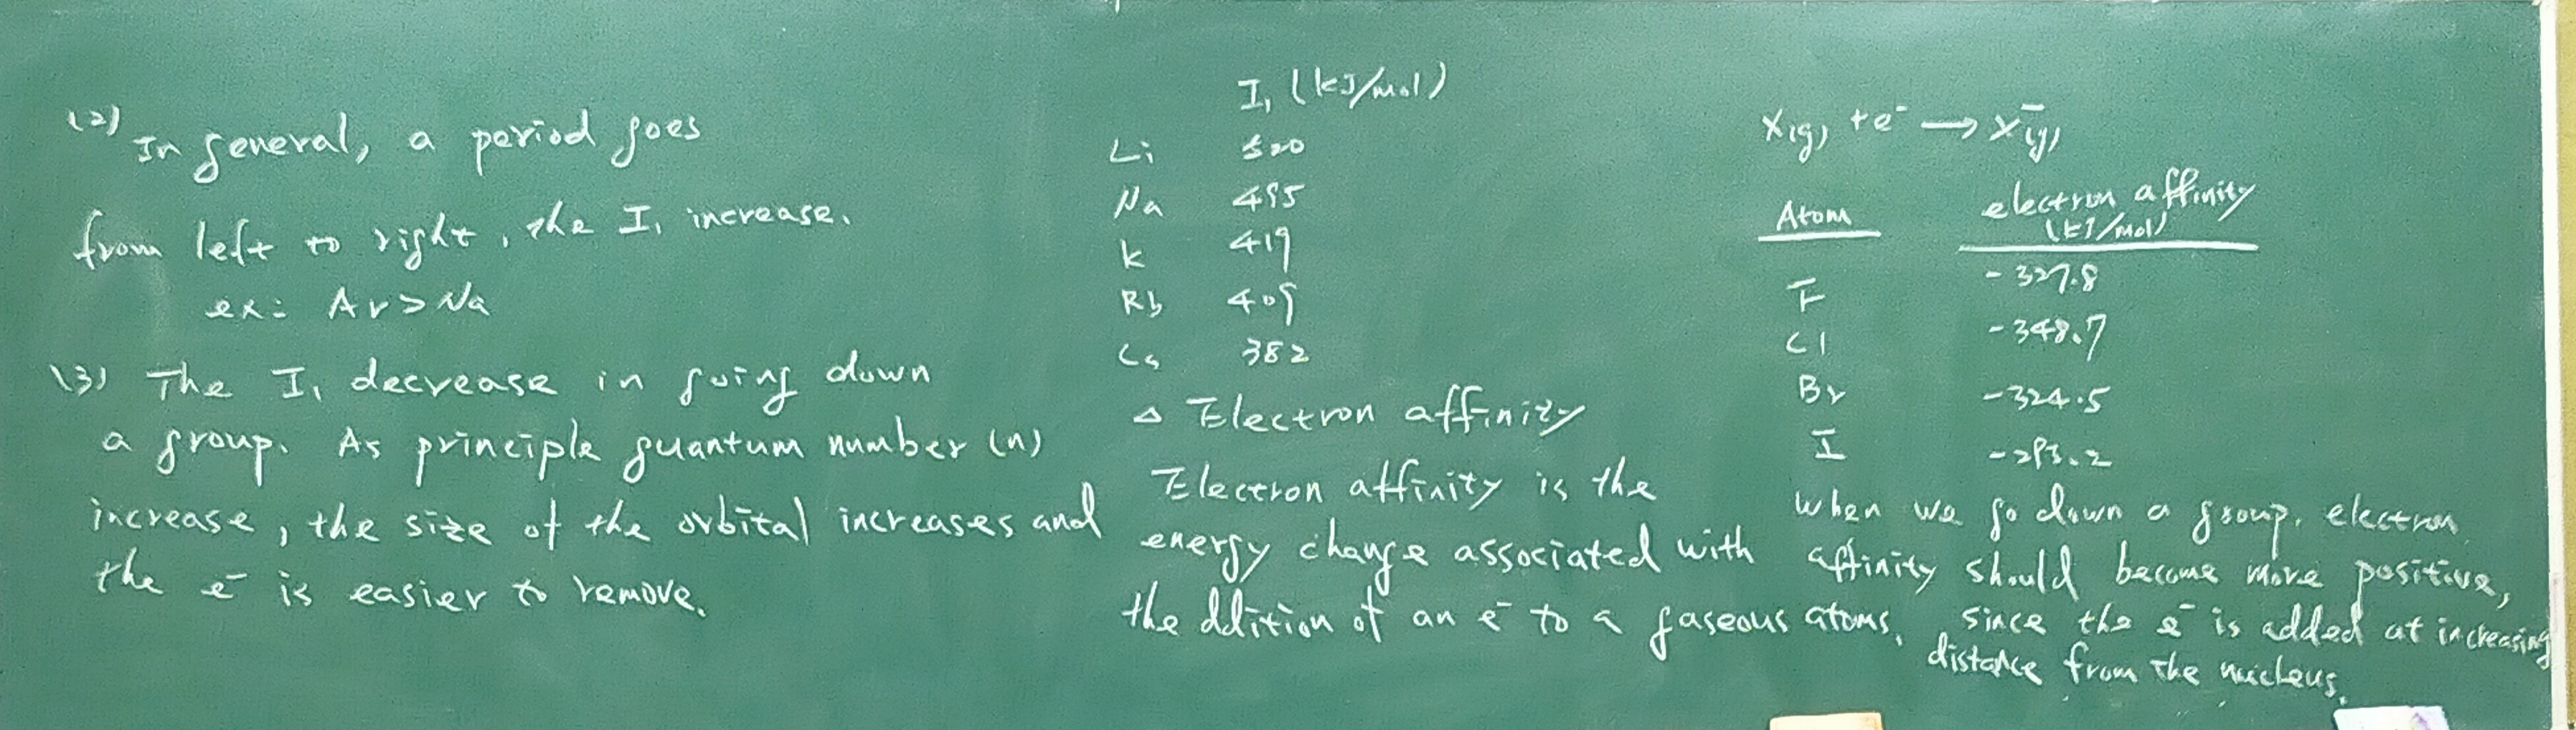 (2) In general, a period goes
from left to right, the I₁ increase.
ex: Ar > Na
(3) The I₁ decrease in going down
a group. As principle quantum number (n)
increase, the size of the orbital increases and
the e⁻ is easier to remove.
I₁ (kJ/mol)
Li 520
Na 495
K 419
Rb 409
Cs 382
△ Electron affinity
Electron affinity is the
energy change associated with
the ddition of an e⁻ to a gaseous atoms.
X(g) + e⁻ → X⁻(g)
Atom electron affinity
(kJ/mol)
F -327.8
Cl -348.7
Br -324.5
I -295.2
When we go down a group, electron
affinity should become more positive,
since the e⁻ is added at increasing
distance from the nucleus.